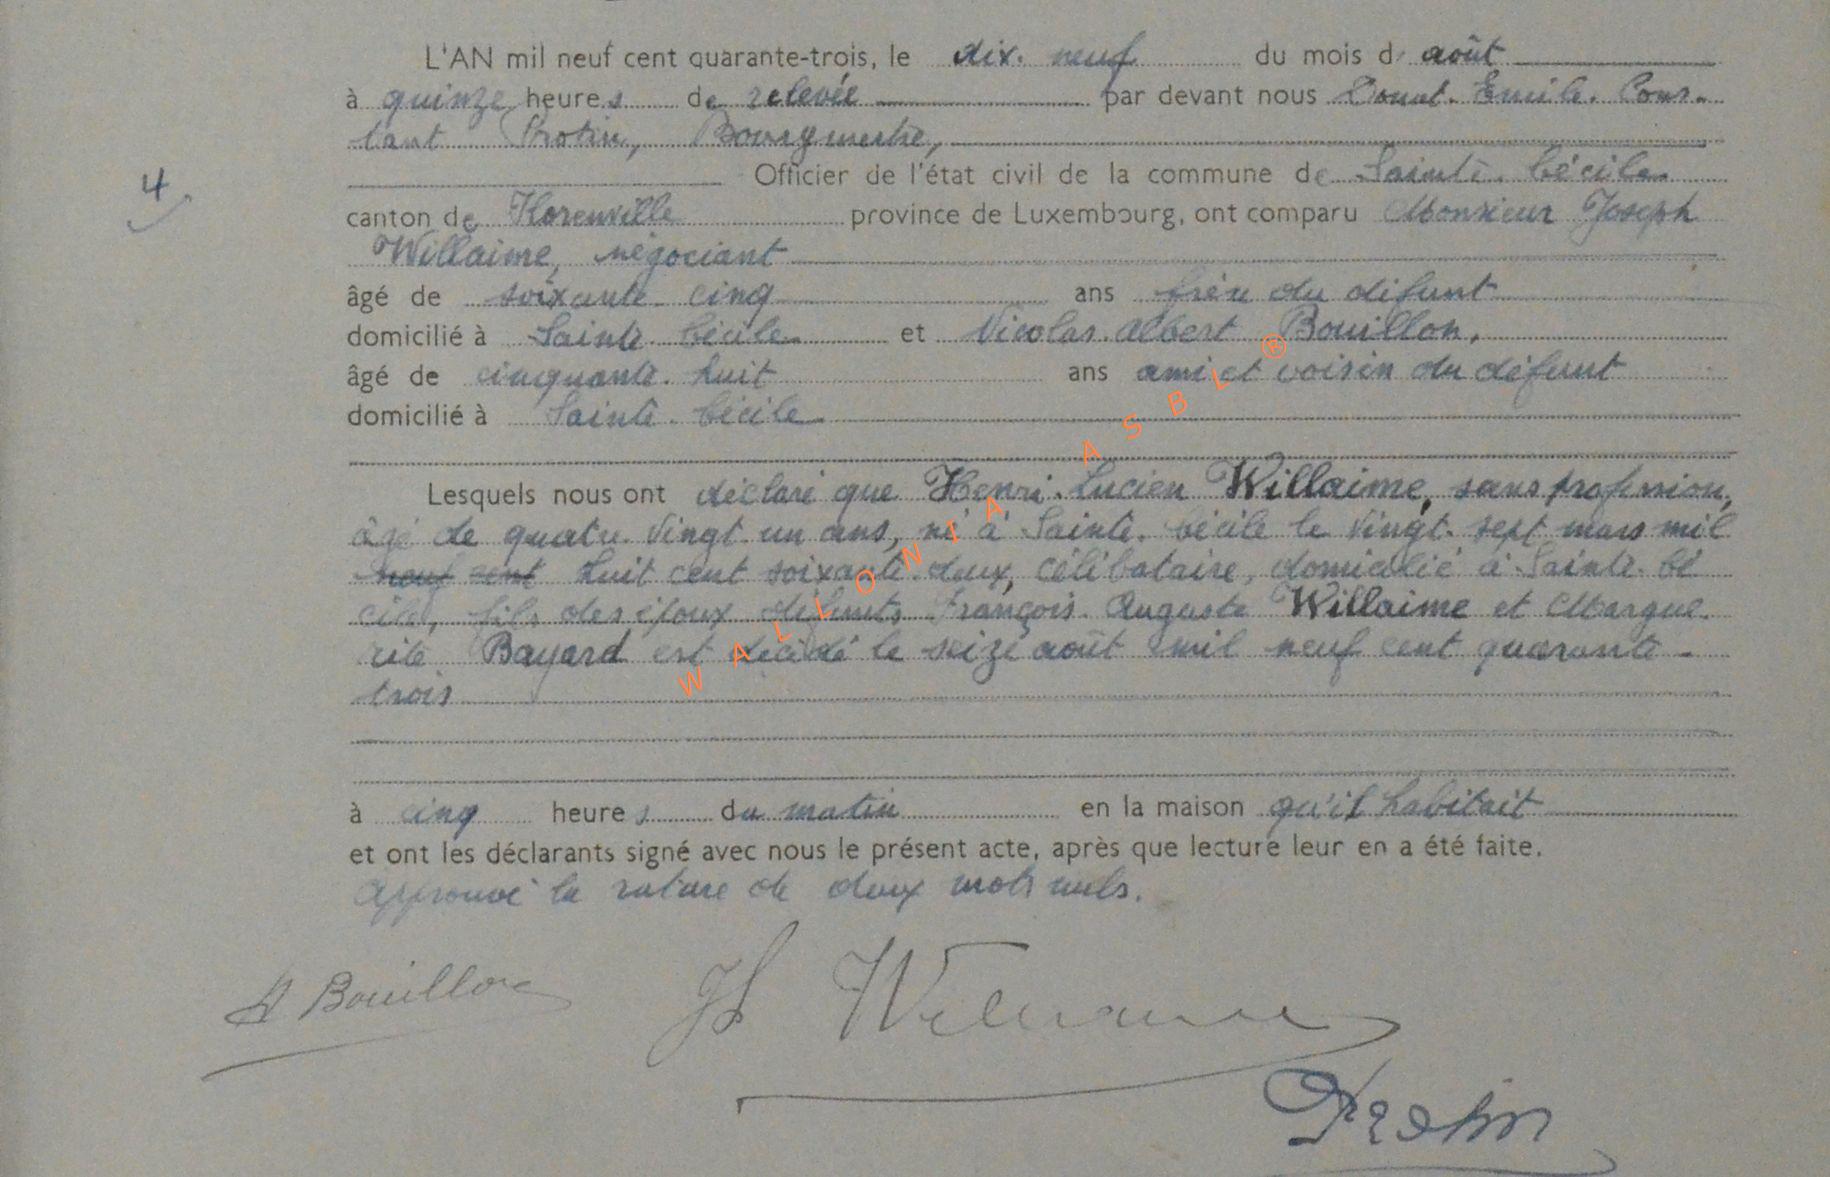 L'AN mil neuf cent quarante-trois, le dix-neuf du mois d' août
à quinze heures de relevée par devant nous Donat-Emile-Cons-
tant Protin, Bourgmestre,
Officier de l'état civil de la commune de Sainte-Cécile
4
canton de Florenville province de Luxembourg, ont comparu Monsieur Joseph
Willaime, négociant
âgé de soixante-cinq ans frère du défunt
domicilié à Sainte-Cécile et Nicolas-Albert Bouillon,
âgé de cinquante-huit ans ami et voisin du défunt
domicilié à Sainte-Cécile
Lesquels nous ont déclaré que Henri-Lucien Willaime, sans profession,
âgé de quatre-vingt-un ans, né à Sainte-Cécile le vingt-sept mars mil
neuf cent huit cent soixante-deux, célibataire, domicilié à Sainte-Cé
cile, fils des époux défunts François-Auguste Willaime et Margue-
rite Bayard est décédé le seize août mil neuf cent quarante-
trois
à cinq heures du matin en la maison qu'il habitait
et ont les déclarants signé avec nous le présent acte, après que lecture leur en a été faite.
Approuvé la rature de deux mots nuls.
A Bouillon
J Willaime
Protin
WALLONIA ASBL ®